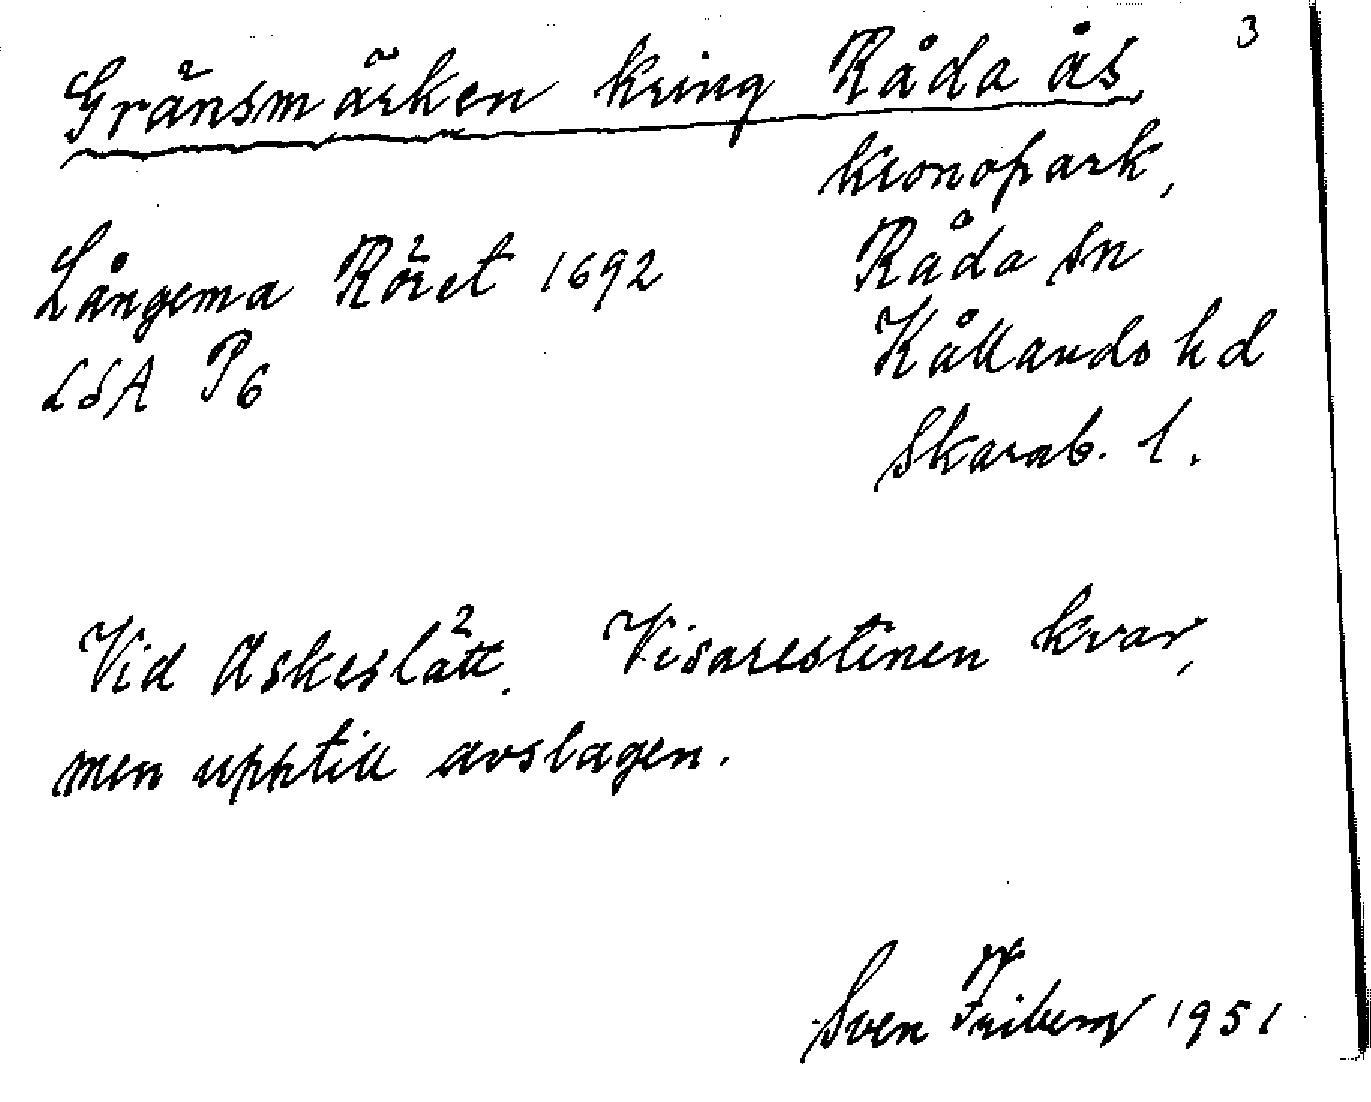 3
Gränsmärken kring Råda ås
kronopark,
Långema Röret 1692 Råda sn
LSA P6 Kållands hd
Skarab. l.
Vid Askeslätt. Visarestenen kvar,
men upptill avslagen.
Sven Friberg 1951